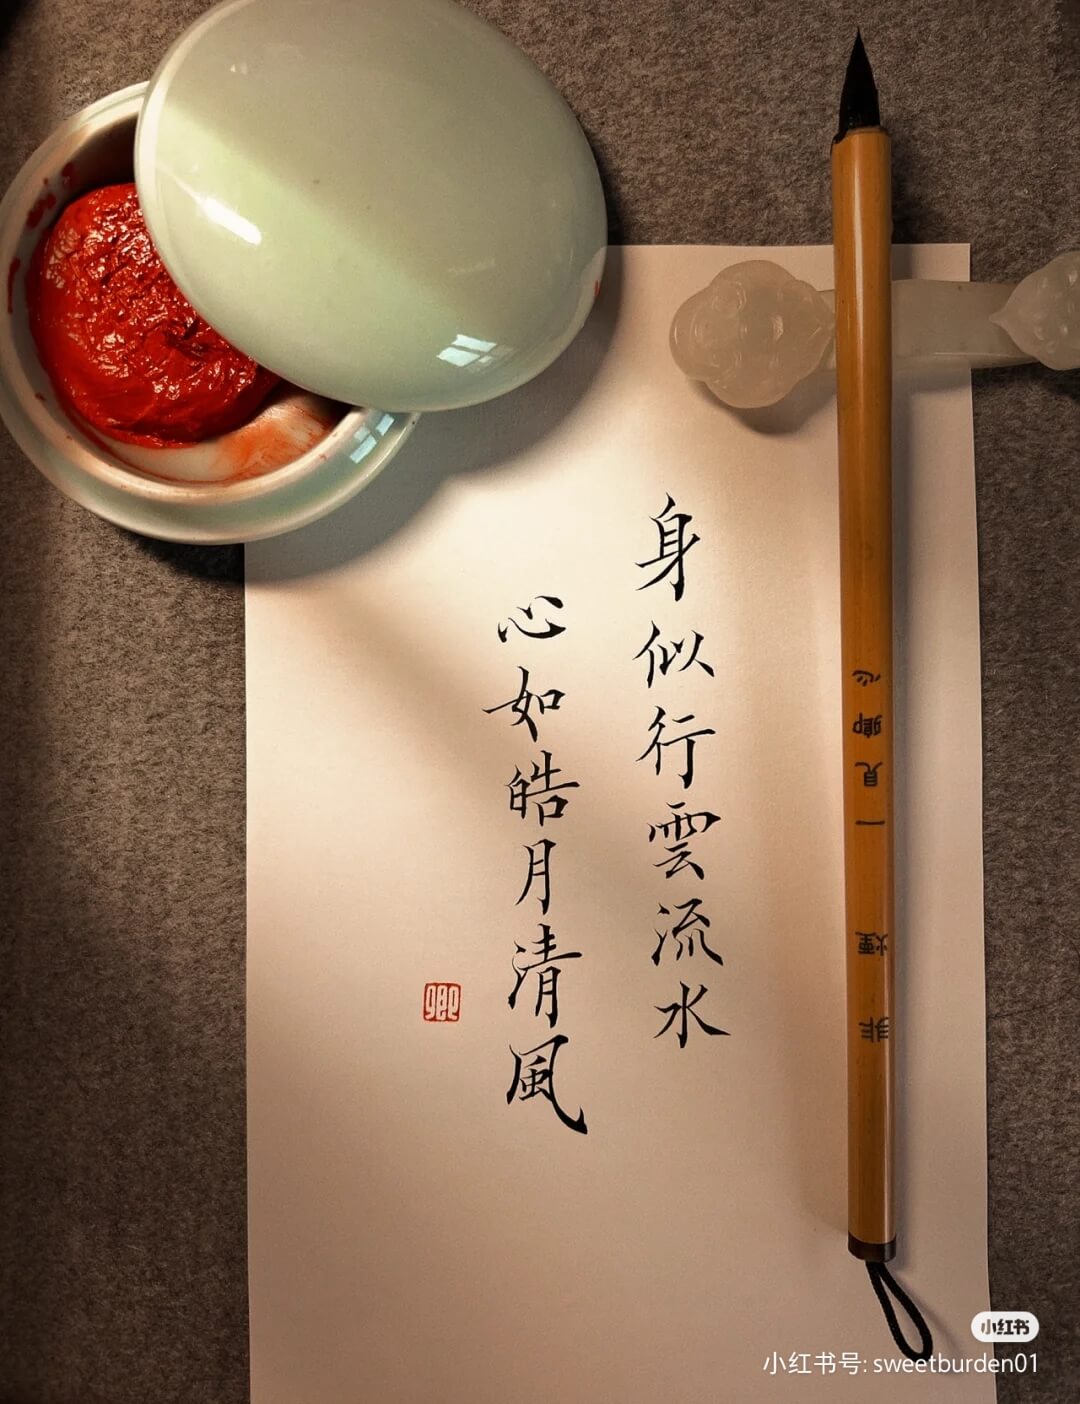 身似行雲流水
心如皓月清風
卿
心卿見一
煙非
小红书
小红书号: sweetburden01